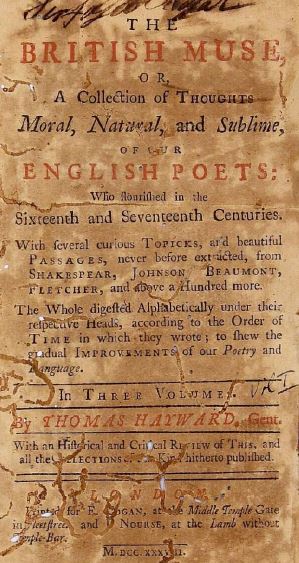 THE
BRITISH MUSE,
OR,
A Collection of THOUGHTS
Moral, Natural, and Sublime,
OF OUR
ENGLISH POETS:
Who flouriſhed in the
Sixteenth and Seventeenth Centuries.
With ſeveral curious TOPICKS, and beautiful
PASSAGES, never before extracted, from
SHAKESPEAR, JOHNSON BEAUMONT,
FLETCHER, and above a Hundred more.
The Whole digeſted Alphabetically under their
reſpective Heads, according to the Order of
TIME in which they wrote; to ſhew the
gradual IMPROVEMENTS of our Poetry and
Language.
IN THREE VOLUMES. Vol I
By THOMAS HAYWARD, Gent.
With an Hiſtorical and Critical REVIEW of THIS, and
all the Kind hitherto publiſhed.
LONDON:
Printed for F. COGAN, at the Middle Temple Gate
in Fleetſtreet and NOURSE, at the Lamb without
Temple-Bar.